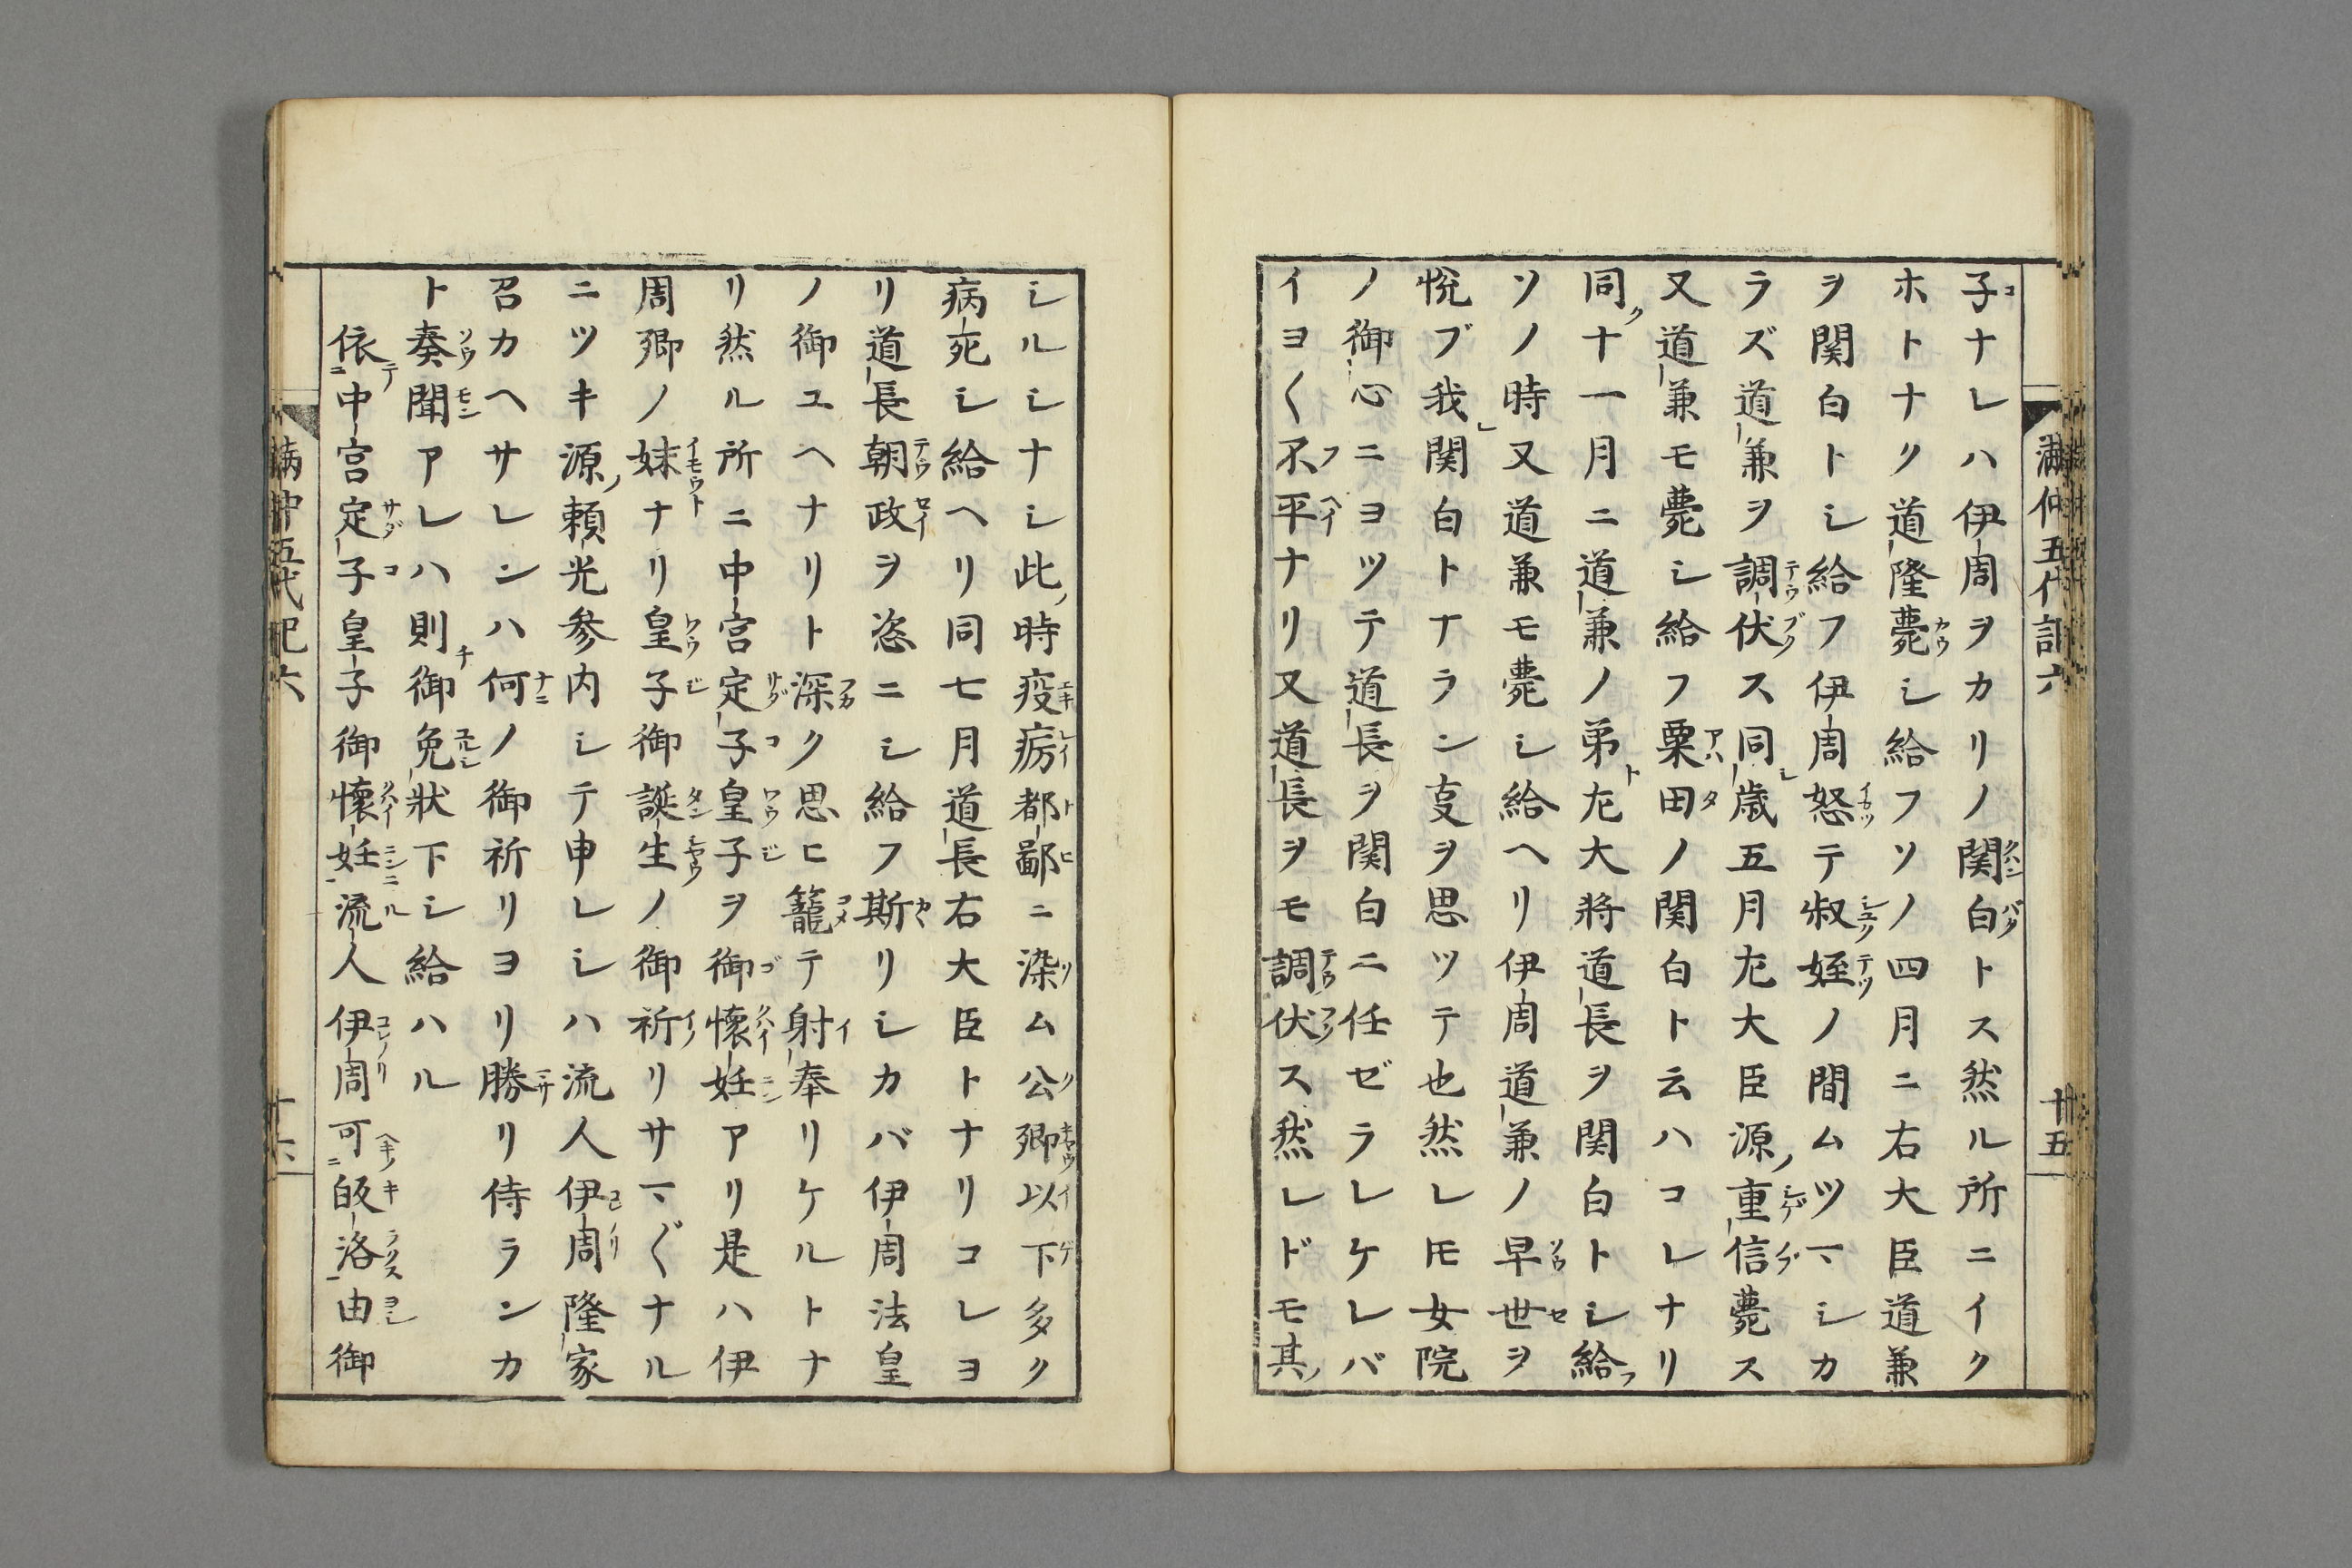 満仲五代記六
十五
子ナレハ伊周ヲカリノ関白トス然ル所ニイク
ホトナク道隆薨シ給フソノ四月ニ右大臣道兼
ヲ関白トシ給フ伊周怒テ叔姪ノ間ムツマシカ
ラズ道兼ヲ調伏ス同歳五月左大臣源重信薨ス
又道兼モ薨シ給フ粟田ノ関白ト云ハコレナリ
同ク十一月ニ道兼ノ弟左大将道長ヲ関白トシ給フ
ソノ時又道兼モ薨シ給ヘリ伊周道兼ノ早世ヲ
悦ブ我レ関白トナラン𠄶ヲ思ツテ也然レ𪜈女院
ノ御心ニヨツテ道長ヲ関白ニ任ゼラレケレバ
イヨ〱不平ナリ又道長ヲモ調伏ス然レドモ其ノ
シルシナシ此ノ時疫癘都鄙ニ染ム公卿以下多ク
病死シ給ヘリ同七月道長右大臣トナリコレヨ
リ道長朝政ヲ恣ニシ給フ斯リシカバ伊周法皇
ノ御ユヘナリト深ク思ヒ籠テ射奉リケルトナ
リ然ル所ニ中宮定子皇子ヲ御懐妊アリ是ハ伊
周卿ノ妹ナリ皇子御誕生ノ御祈リサマ〲ナル
ニツキ源ノ頼光参内シテ申レシハ流人伊周隆家
召カヘサレンハ何ノ御祈リヨリ勝リ侍ランカ
ト奏聞アレハ則チ御免状下シ給ハル
依テ中宮定子皇子御懐妊流人伊周可皈洛由御
満仲五代記六
十六